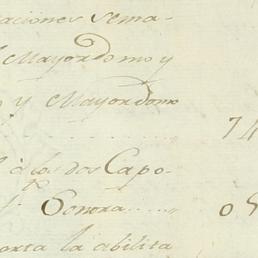 aciones sema-
Mayordomo y
o y Mayordomo
74
à los dos Capo-
Sonora 0
orta la abilita